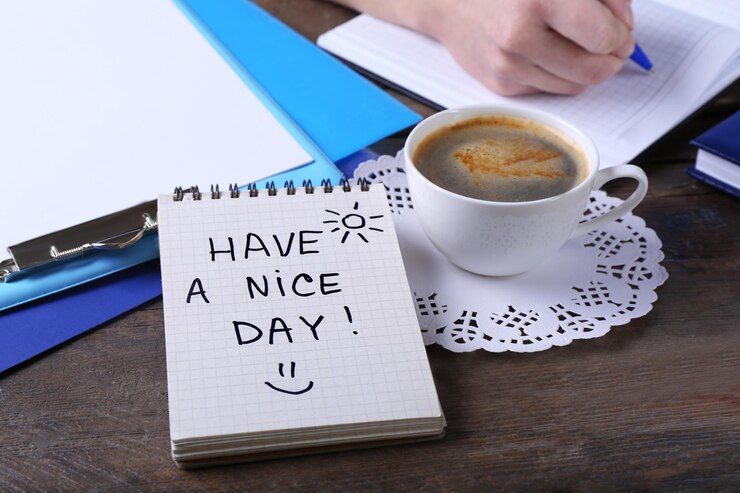 HAVE
A NiCE
DAY!